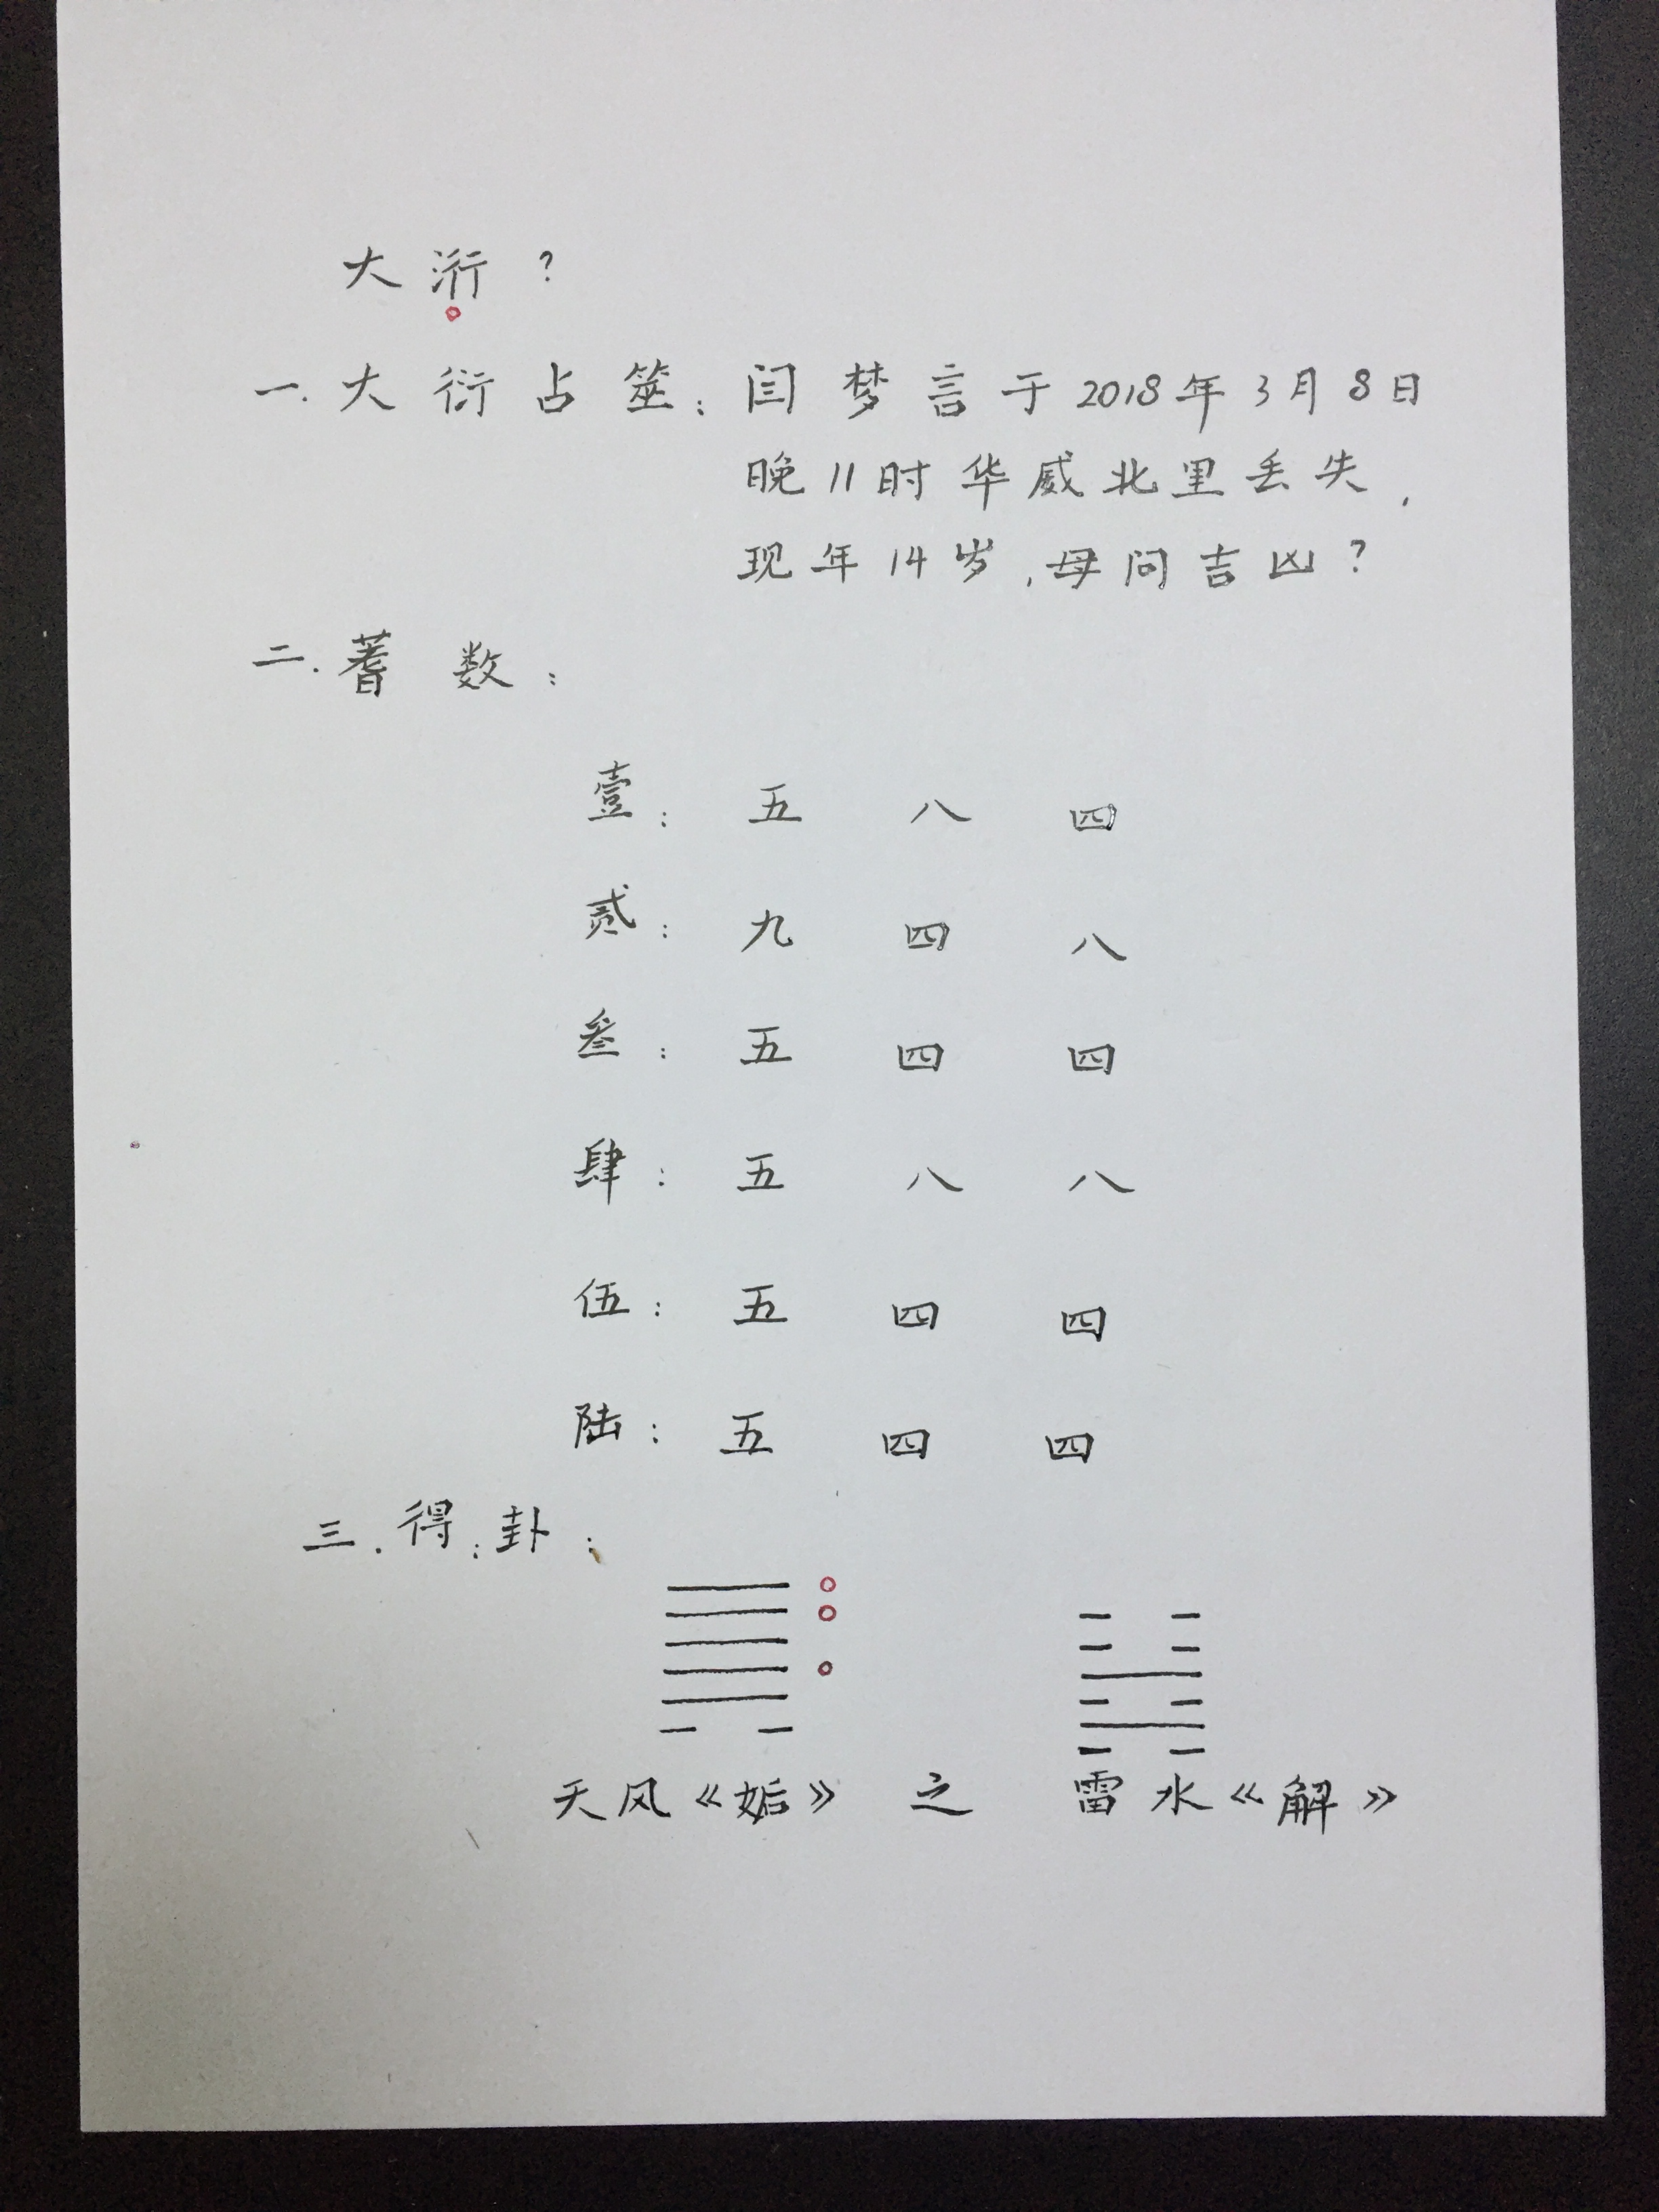 大 ?
一.大衍占筮:闫梦言于2018年3月8日
晚11时华威北里丢失,
现年14岁,母问吉凶?
二.蓍数:
壹: 五 八 四
贰: 九 四 八
叁: 五 四 四
肆: 五 八 八
伍: 五 四 四
陆: 五 四 四
三.得:卦:
天风《姤》 之 雷水《解》